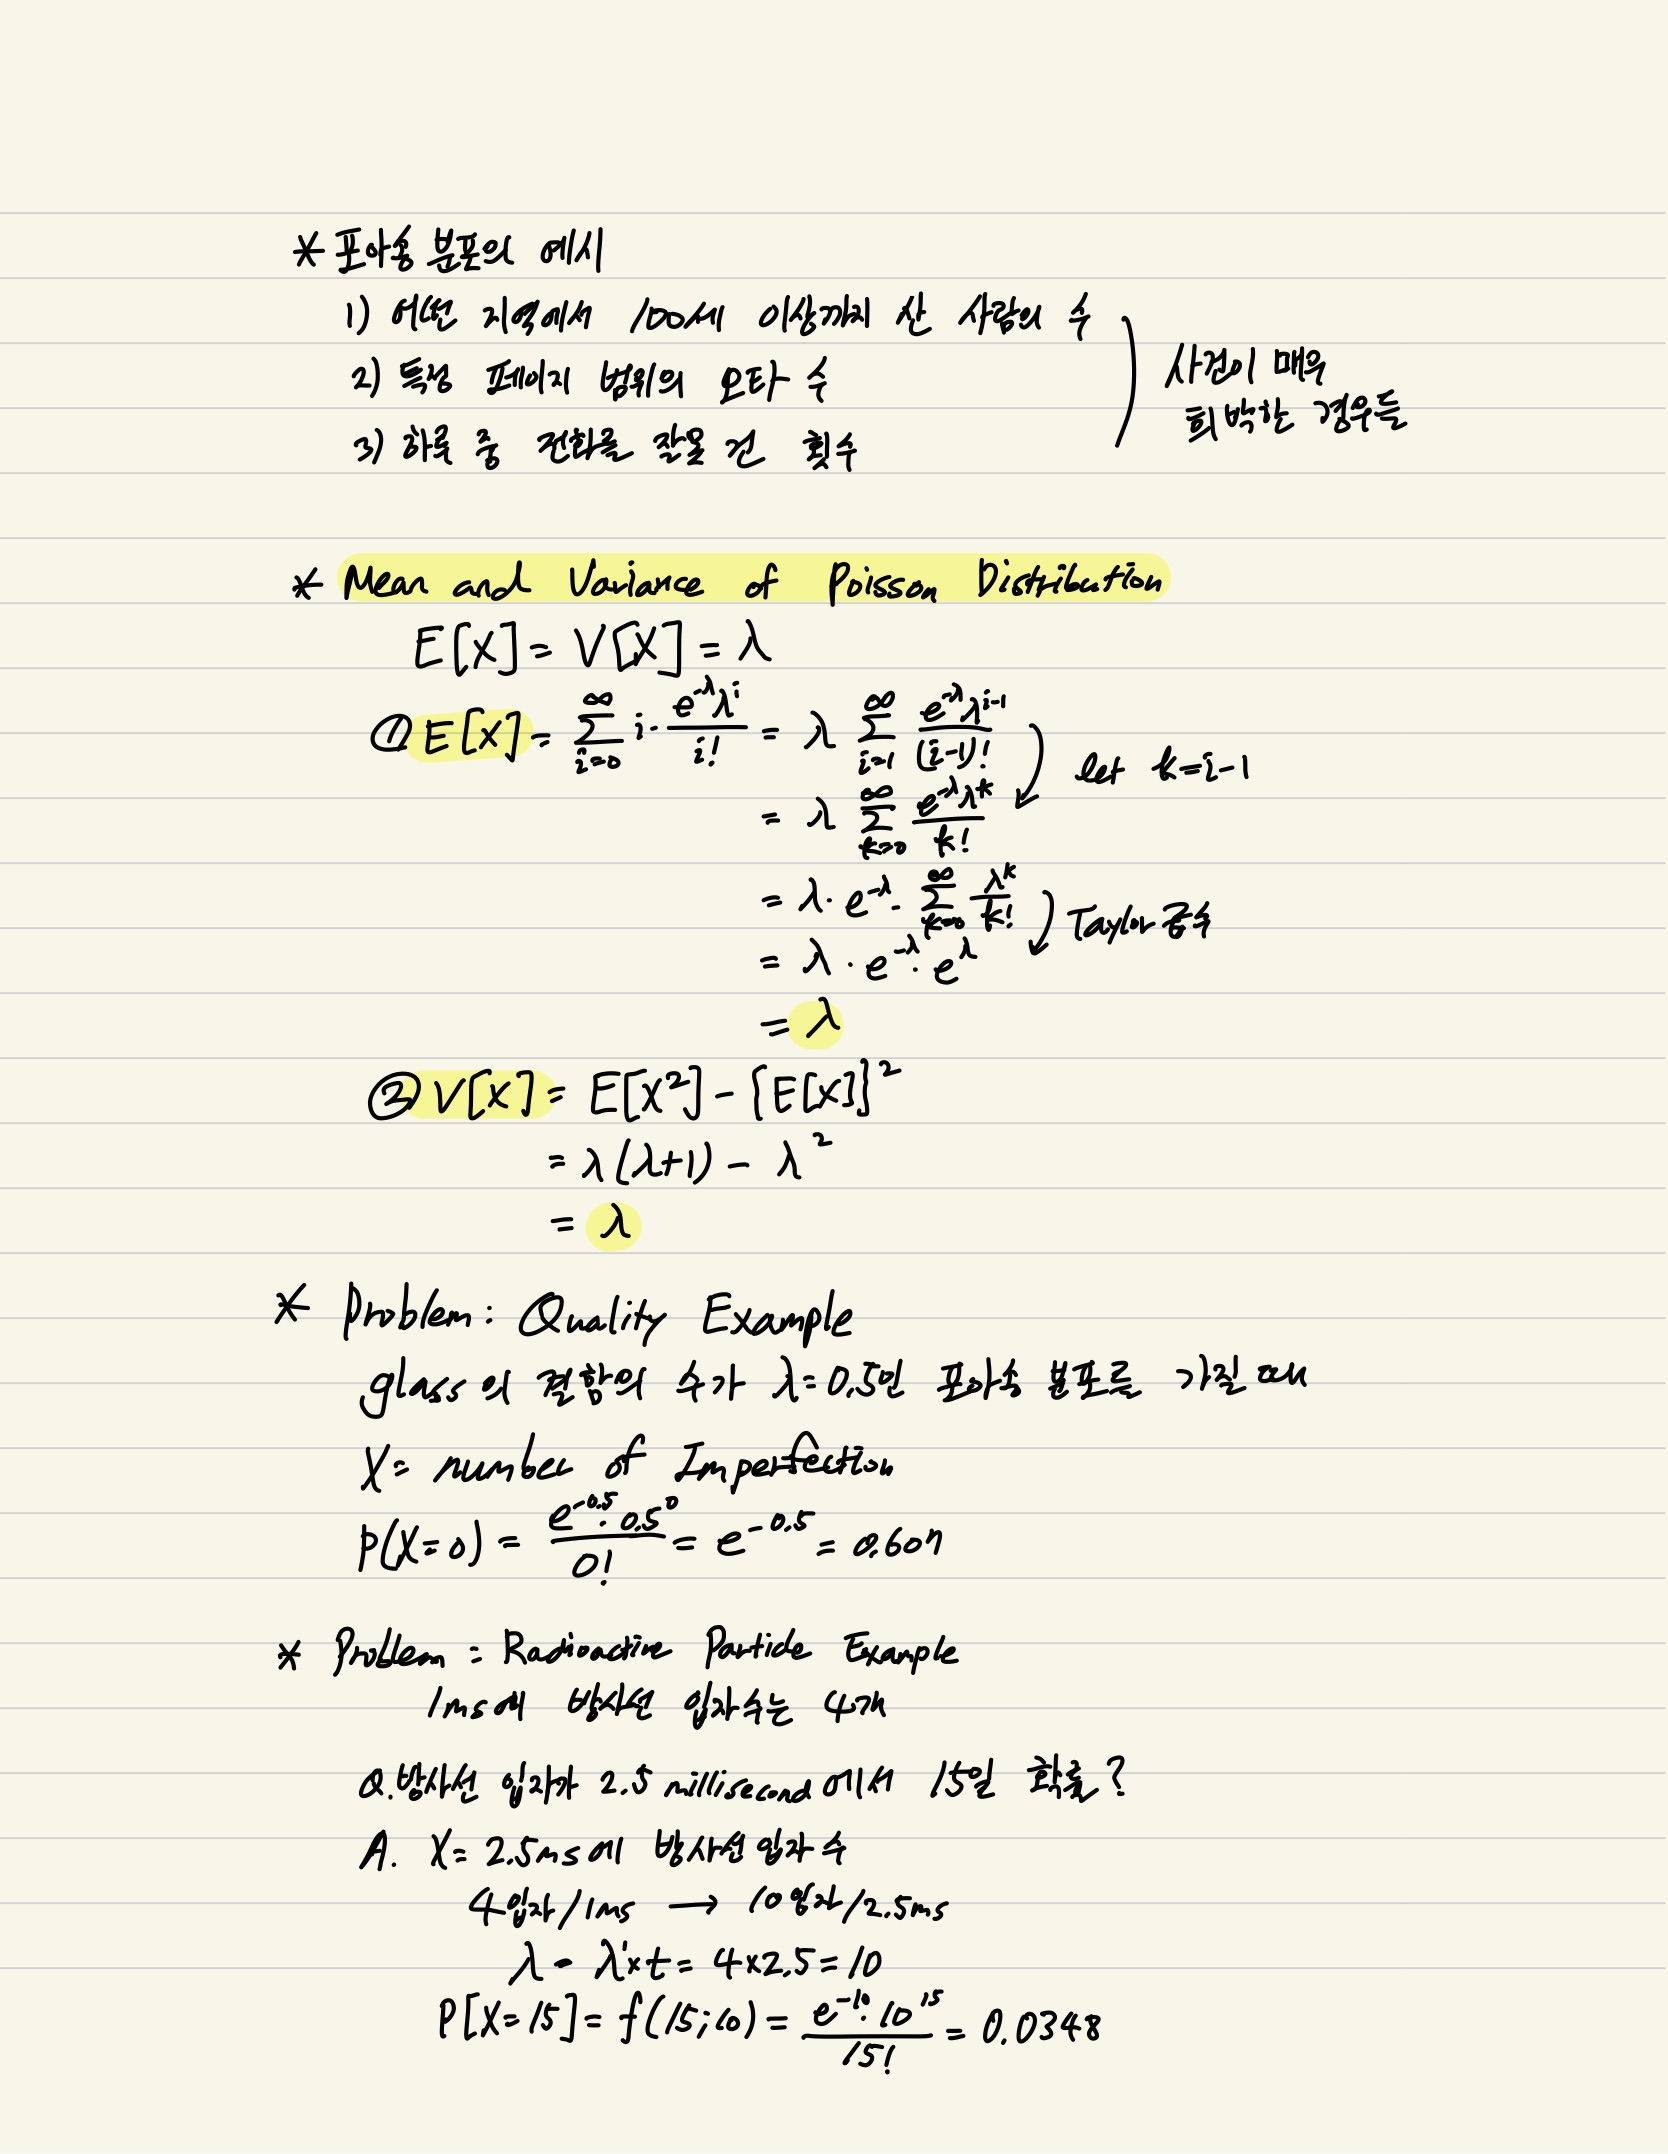 * 포아송 분포의 예시
1) 어떤 지역에서 100세 이상까지 산 사람의 수
2) 특정 페이지 범위의 오타 수
3) 하루 중 전화를 잘못 건 횟수
사건이 매우
희박한 경우들
* Mean and Variance of Poisson Distribution
E[X] = V[X] = λ
① E[X] = ∑_{i=0}^{∞} i · \frac{e^{-λ}λ^{i}}{i!} = λ ∑_{i=1}^{∞} \frac{e^{-λ}λ^{i-1}}{(i-1)!}
let k=i-1
= λ ∑_{k=0}^{∞} \frac{e^{-λ}λ^{k}}{k!}
= λ · e^{-λ} · ∑_{k=0}^{∞} \frac{λ^{k}}{k!}
Taylor 급수
= λ · e^{-λ} · e^{λ}
= λ
② V[X] = E[X²] - {E[X]}²
= λ(λ+1) - λ²
= λ
* Problem: Quality Example
glass의 결함의 수가 λ=0.5인 포아송 분포를 가질 때
X = number of Imperfection
P(X=0) = \frac{e^{-0.5} · 0.5^{0}}{0!} = e^{-0.5} = 0.607
* Problem = Radioactive Particle Example
1ms에 방사선 입자수는 4개
Q. 방사선 입자가 2.5 millisecond에서 15일 확률?
A. X = 2.5ms에 방사선 입자 수
4입자/1ms → 10입자/2.5ms
λ = λ'×t = 4×2.5 = 10
P[X=15] = f(15;10) = \frac{e^{-10} · 10^{15}}{15!} = 0.0348